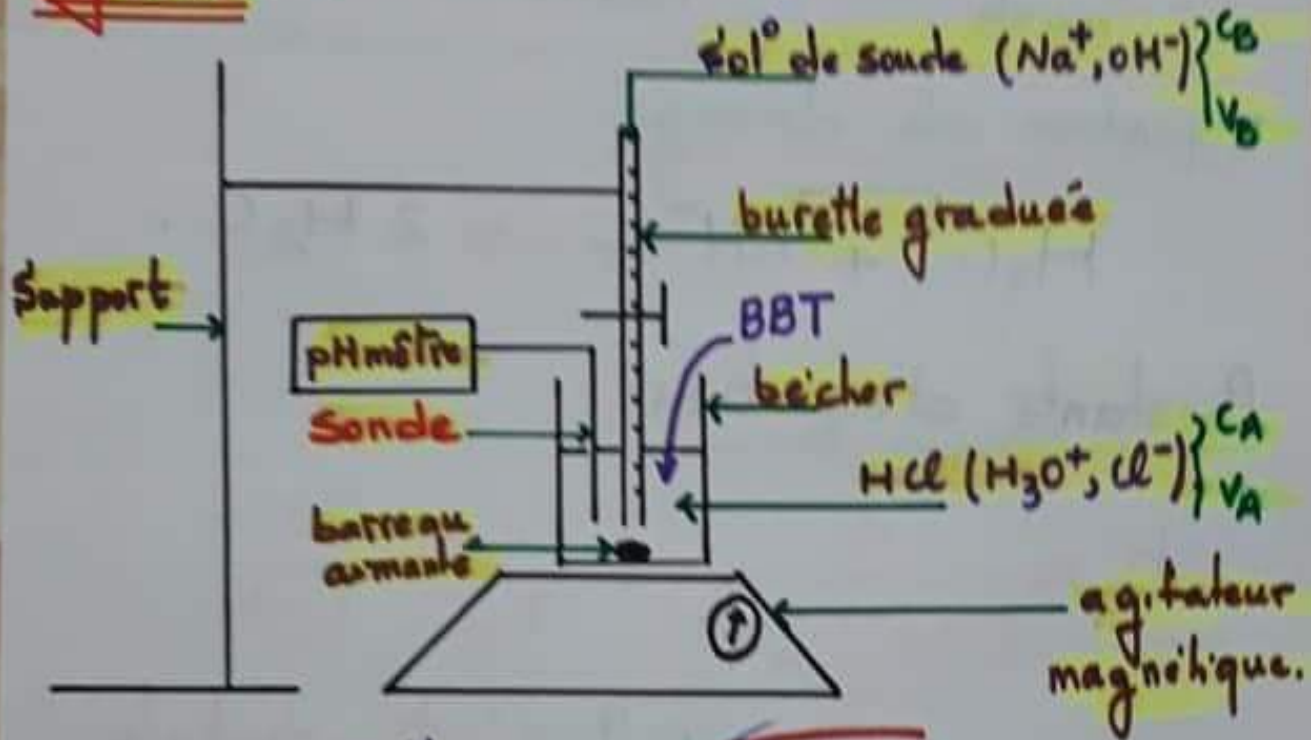 Sol° de soude (Na⁺, OH⁻)} CB
VB
burette graduée
Support
BBT
pHmètre
bécher
Sonde
HCl (H₃O⁺, Cl⁻)} CA
VA
barreau
aimanté
agitateur
magnétique.